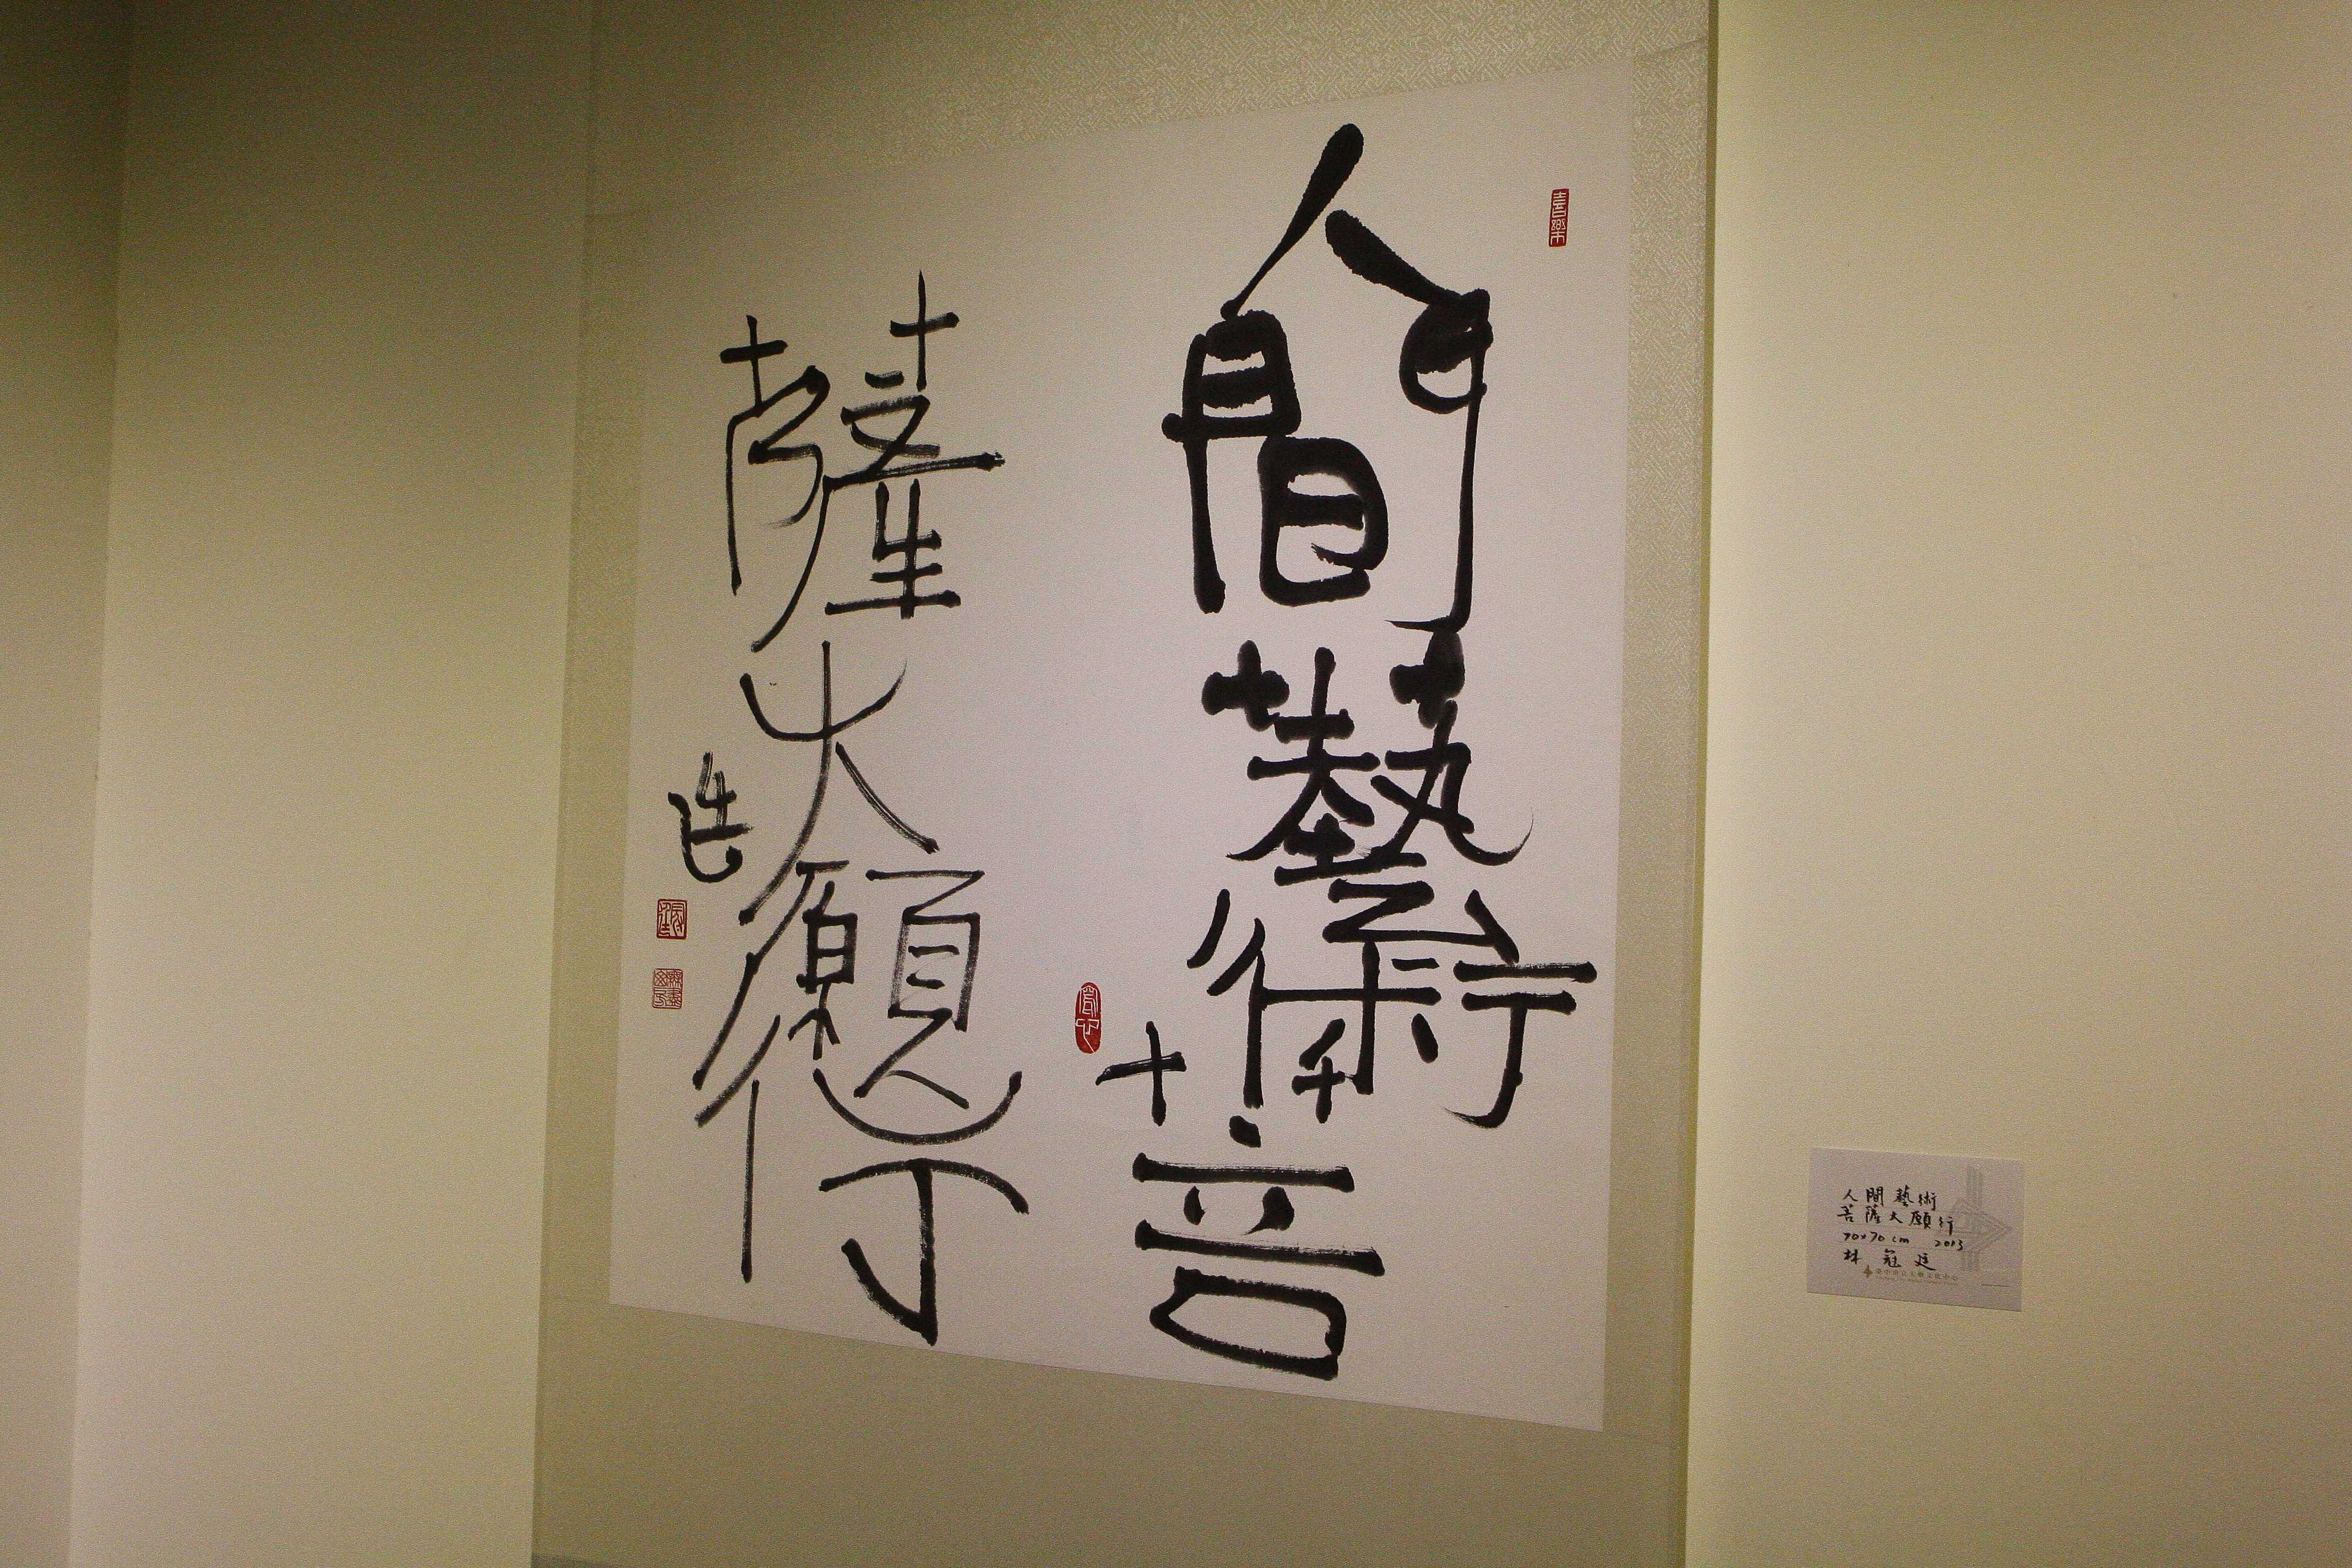 人間藝術菩
薩大願行
人間藝術
菩薩大願行
70x70cm 2013
林冠廷